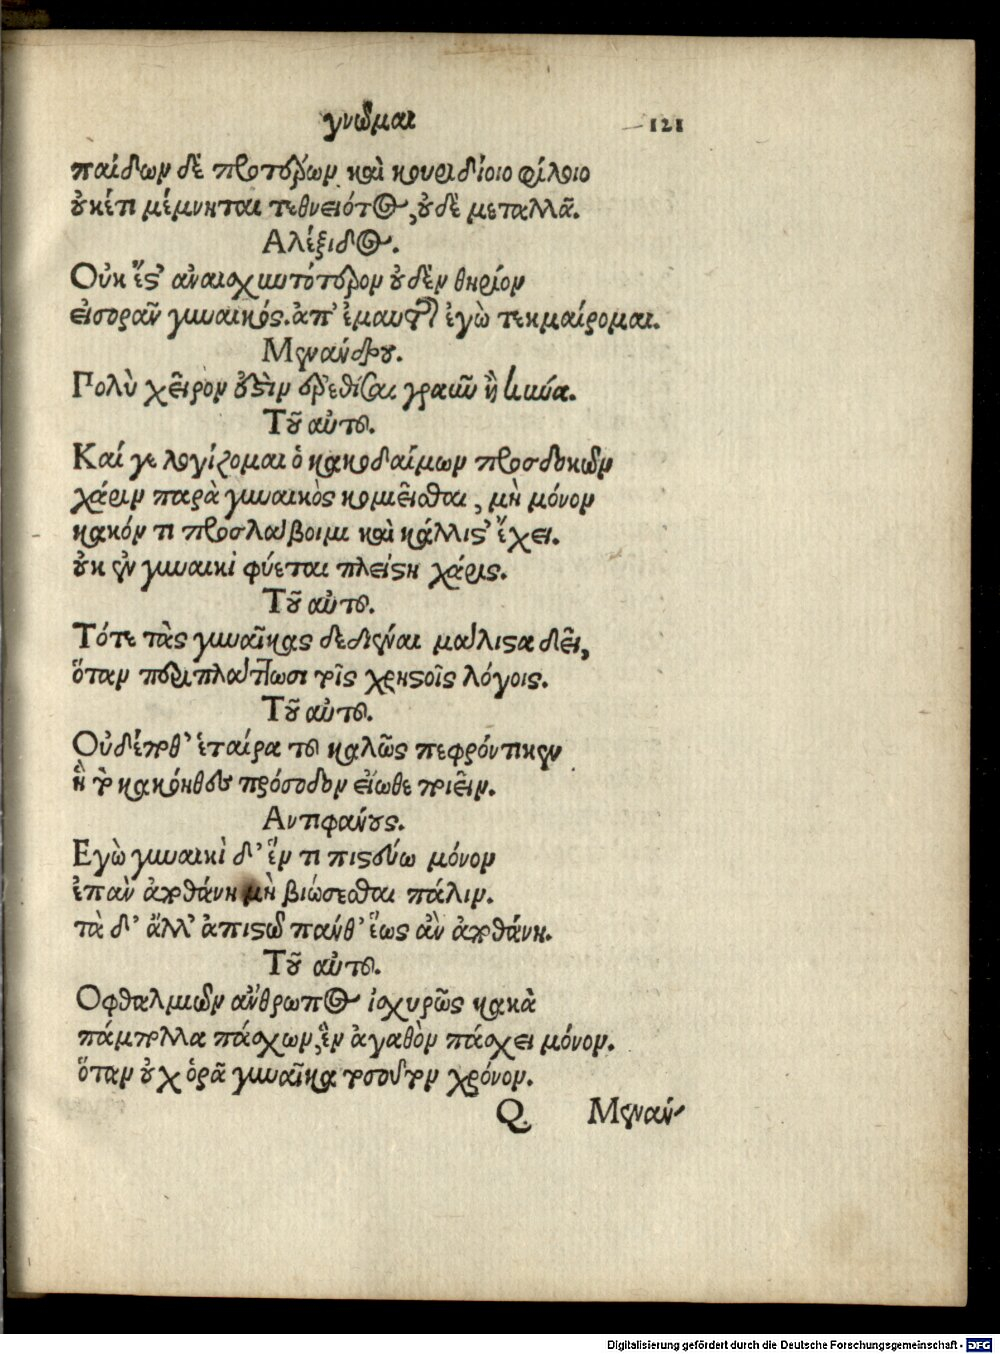 γνῶμαι 121
παίδων δὲ προτέρων καὶ κουριδίοιο φίλοιο
οὐκέτι μέμνηται τεθνειότος, οὐδὲ μεταλλᾷ.
Αλέξιδος.
Οὐκ ἔστ' ἀναισχυντότερον οὐδὲν θηρίον
εἰσορᾶν γυναικός. ἀπ' ἐμαυτῆς ἐγὼ τεκμαίρομαι.
Μενάνδρου.
Πολὺ χεῖρον οὐστὶν ἐρεθίσαι γραῦν ἢ κύνα.
Τοῦ αὐτοῦ.
Καί γε λογίζομαι ὁ κακοδαίμων προσδοκῶν
χάριν παρὰ γυναικὸς κομιεῖσθαι, μὴ μόνον
κακόν τι προσλάβοιμι καὶ κάλλιστ' ἔχει.
οὐκ ἐν γυναικὶ φύεται πλείστη χάρις.
Τοῦ αὐτοῦ.
Τότε τὰς γυναῖκας δεδιέναι μάλιστα δεῖ,
ὅταν περιπλάττωσι τοῖς χρηστοῖς λόγοις.
Τοῦ αὐτοῦ.
Οὐδέποθ' ἑταίρα τοῦ καλῶς πεφρόντικεν
ἣ τὸ κακόηθες πρόσοδον εἴωθε ποιεῖν.
Αντιφάνους.
Εγὼ γυναικὶ δ' ἕν τι πιστεύω μόνον
ἐπὰν ἀποθάνη μὴ βιώσεσθαι πάλιν.
τὰ δ' ἄλλ' ἀπιστῶ πάνθ' ἕως ἂν ἀποθάνη.
Τοῦ αὐτοῦ.
Οφθαλμιῶν ἄνθρωπος ἰσχυρῶς κακὰ
πάμπολλα πάσχων, ἓν ἀγαθὸν πάσχει μόνον.
ὅταν οὐχ ὁρᾷ γυναῖκα τοσοῦτον χρόνον.
Q. Μενάν-
Digitalisierung gefördert durch die Deutsche Forschungsgemeinschaft - DFG